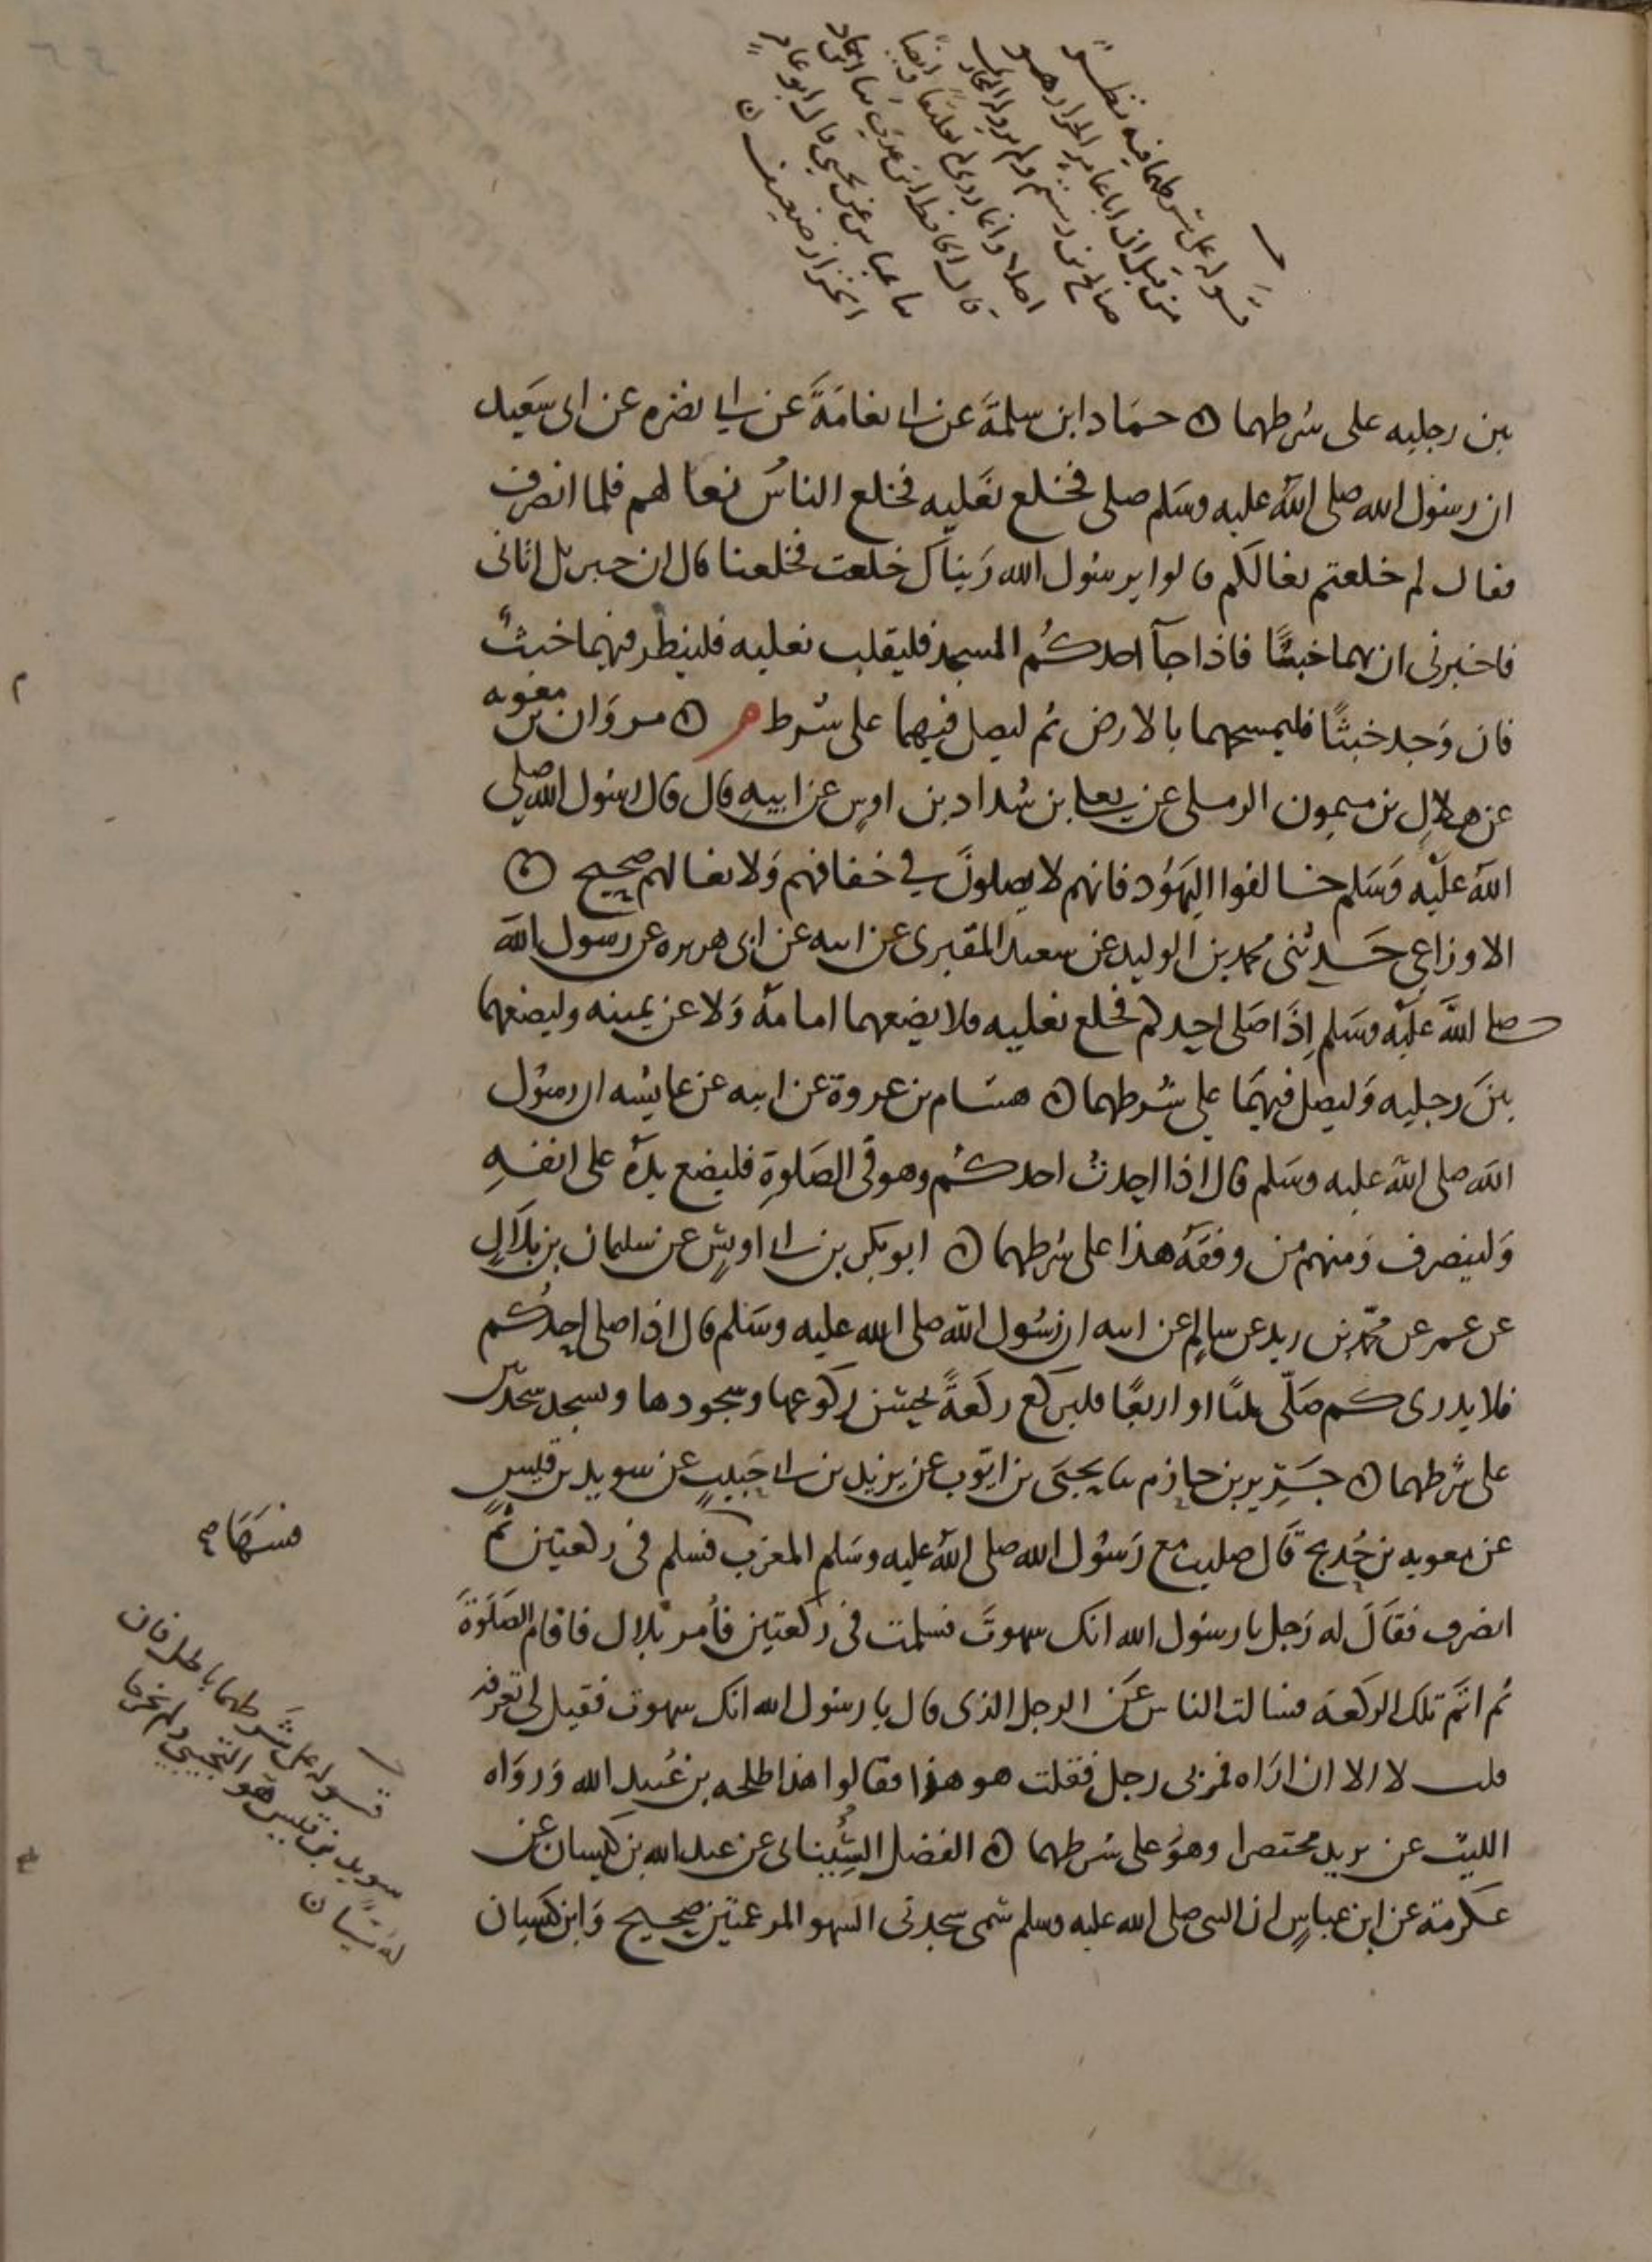 قوله على شرطهما فيه نظر
من قبل ان ابا عامر الخزاز هو
صالح بن رستم ولم يرو له البخاري
اصلا وانما روى له تعليقا
قال الحافظ ابن عدي
عباس عن يحيى قال ابو عامر
الخزاز ضعيف
بين رجليه على شرطهما ه حماد ابن سلمة عن ابي نعامة عن ابي نضره عن ابى سعيد
ان رسول الله صلى الله عليه وسلم صلى فخلع نعليه فخلع الناس نعالهم فلما انصرف
فقال لم خلعتم نعالكم قالوا يرسول الله رَيناك خلعت فخلعنا قال ان جبريل اتانى
فاخبرنى ان بهما خبثا فاذا جآ احدكم المسجد فليقلب نعليه فلينظر فيهما خبث
فان وَجد خبثا فليمسحهما بالارض ثم ليصل فيهما على شرط م ه مروان بن معويه
عن هلال بن ميمون الرملى عن يعلى بن شداد بن اوس عن ابيه قال قال رسول الله صلى
الله عليه وسلم خالفوا اليهود فانهم لا يصلون في خفافهم ولا نعالهم صحيح ه
الاوزاعي حدثنى محمد بن الوليد عن سعيد المقبرى عن ابيه عن ابى هريره عن رسول الله
صلى الله عليه وسلم اذا صلى احدكم فخلع نعليه فلا يضعهما امامه ولا عن يمينه وليضعهما
بين رجليه وليصل فيهما على شرطهما ه هشام بن عروة عن ابيه عن عايشه ان رسول
الله صلى الله عليه وسلم قال اذا احدث احدكم وهو فى الصلوة فليضع يده على انفه
ولينصرف ومنهم من وقفه هذا على شرطهما ه ابو بكر بن ابي اويس عن سليمان بن بلال
عن عمر عن محمد بن زيد عن سالم عن ابيه ان رسول الله صلى الله عليه وسلم قال اذا صلى احدكم
فلا يدرى كم صلى ثلثا او اربعا فليركع ركعة يحسن ركوعها وسجودها ويسجد سجدتين
على شرطهما ه جرير بن حازم ثنا يحيى بن ايوب عن يزيد بن ابي حبيب عن سويد بن قيس
عن معويه بن حُديج قال صليت مع رسول الله صلى الله عليه وسلم المغرب فسلم فى ركعتين ثم
انصرف فقال له رجل يا رسول الله انك سهوت فسلمت فى ركعتين فأمر بلال فاقام الصلوة
ثم اتم تلك الركعة فسالت الناس عن الرجل الذى قال يا رسول الله انك سهوت فقيل لى تعرفه
قلت لا الا ان اراه فمر بى رجل فقلت هو هذا فقالوا هذا طلحه بن عُبيد الله ورواه
الليث عن يزيد مختصرا وهو على شرطهما ه الفضل الشيبانى عن عبد الله بن كيسان عن
عكرمة عن ابن عباس ان النبى صلى الله عليه وسلم سمى سجدتى السهو المرغمتين صحيح وابن كيسان
فسها صح
قوله على شرطهما باطل فان
سويد بن قيس هو التجيبي ولم يخرجا
له شيا ن